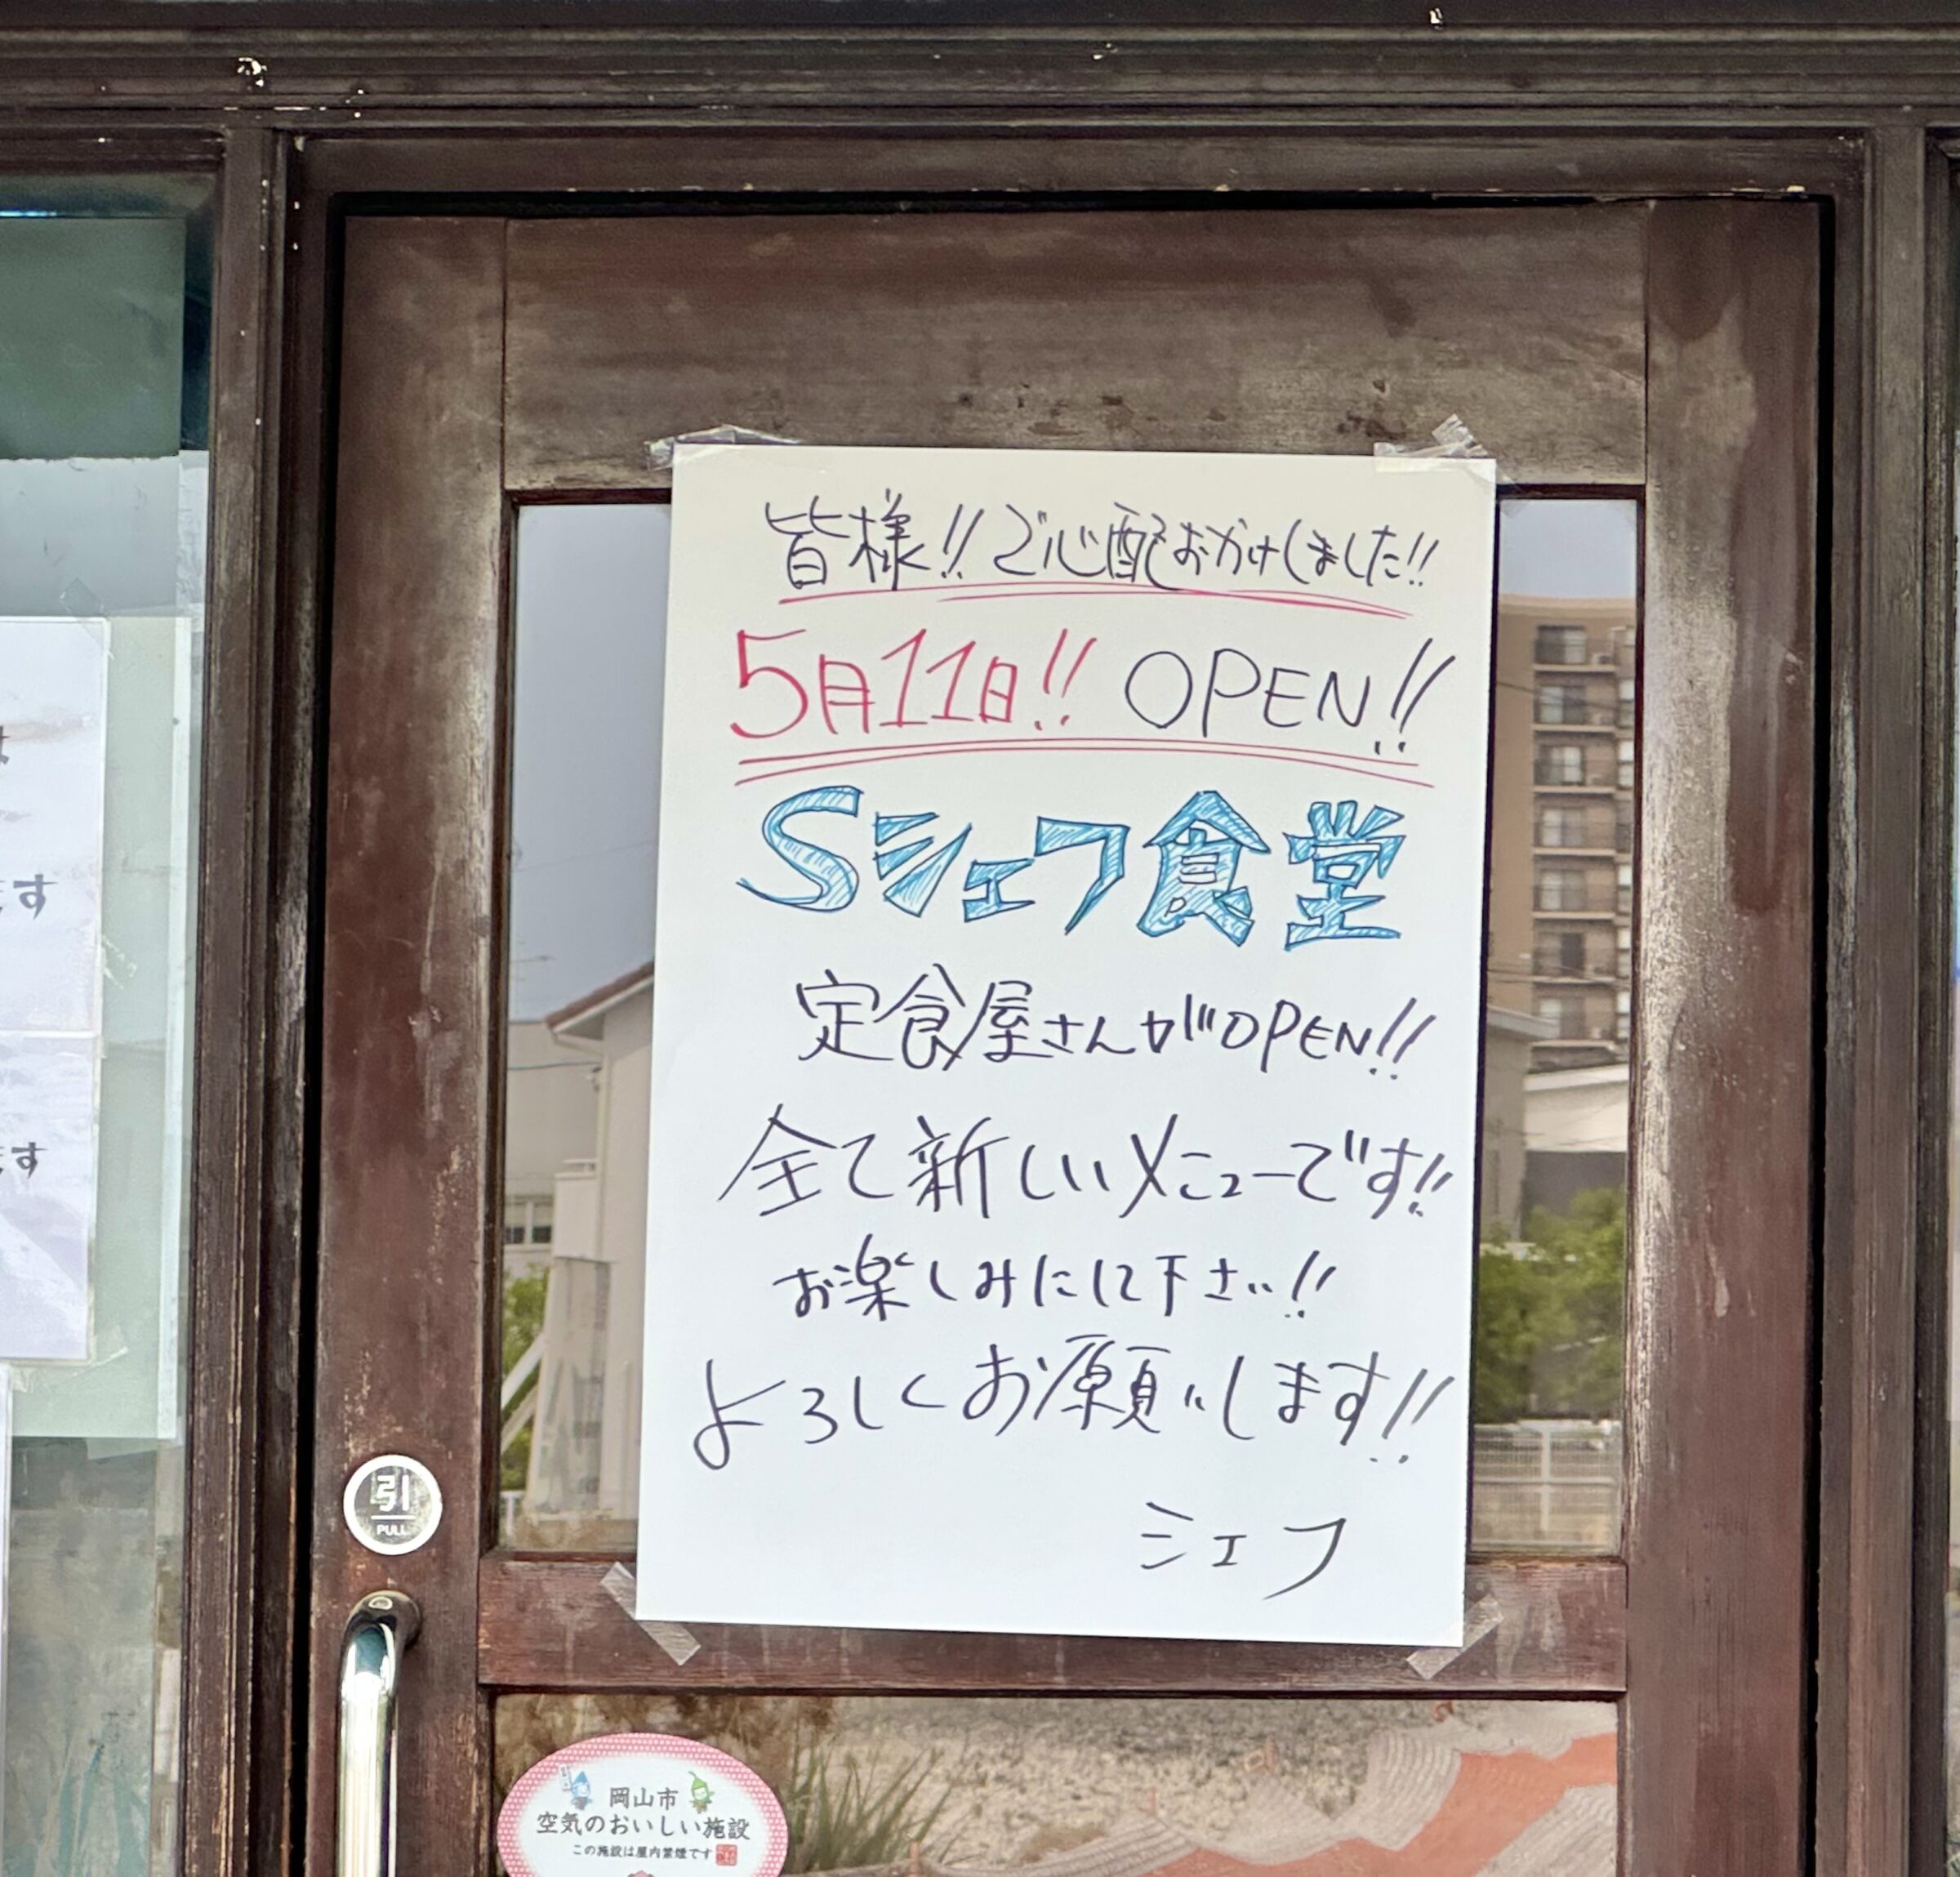 皆様!!ご心配おかけしました!!
5月11日!! OPEN!!
Sシェフ食堂
定食屋さんがOPEN!!
全て新しいメニューです!!
お楽しみにして下さい!!
よろしくお願いします!!
シェフ
引
PULL
岡山市
空気のおいしい施設
この施設は屋内禁煙です
す
す